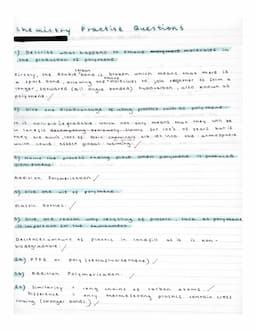 Chemistry Practise Questions
1) Describe what happens to ethene molecules in
the production of polyethene.
Firstly, the double carbon bond is broken which means that there is
a spare bond, enabling the molecules to join together to form a
longer, saturated (all single bonds) hydrocarbon, also known as
polythene.
2) Give one disadvantage of using products such as polythene.
It is non-biodegradable which not only means that they will be
in landfill for 100's of years but if
they are burnt, lots of toxic are let into the atmosphere
which could affect global warming.
3) Name the process taking place when polythene is produced
Addition Polymerisation.
4) Give one use of polythene.
Plastic bottles.
5) Give one reason why recycling of plastic, such as polythene
is important for the environment.
Decreases amount of plastic in landfill as it is non-
biodegradable.
2a) PTFE or poly (tetrafluoroethene)
2b) Addition Polymerisation.
2c) Similarity = long chains of carbon atoms.
Difference = only thermosetting plastic contain cross
linking (stronger bonds).